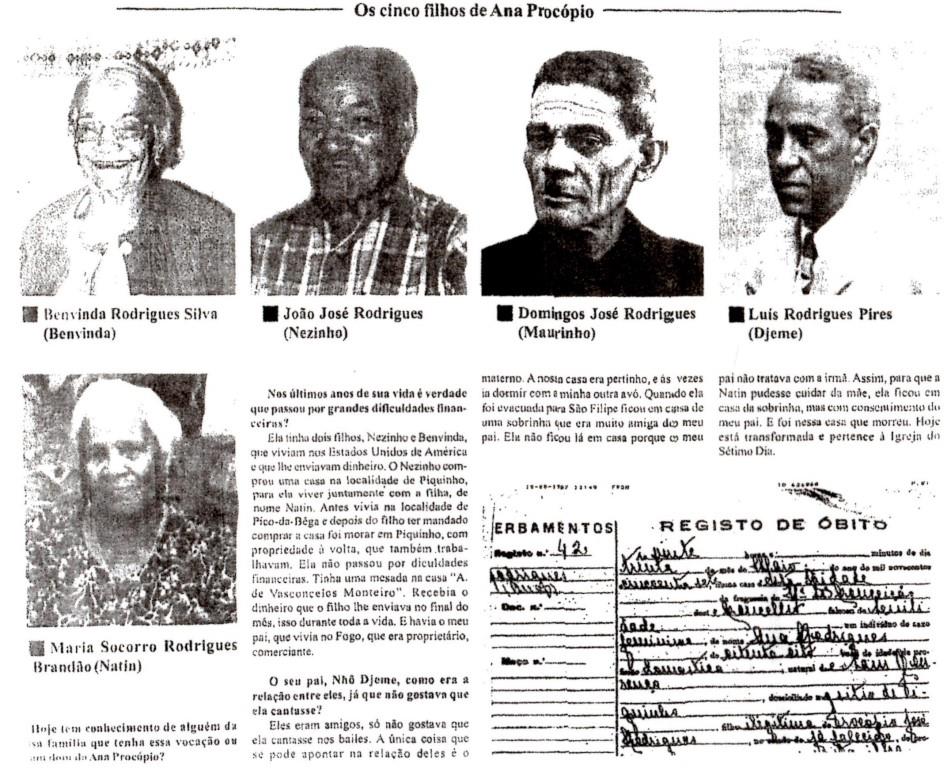 Os cinco filhos de Ana Procópio
Benvinda Rodrigues Silva
(Benvinda)
João José Rodrigues
(Nezinho)
Domingos José Rodrigues
(Maurinho)
Luís Rodrigues Pires
(Djeme)
Maria Socorro Rodrigues
Brandão (Natin)
Hoje tem conhecimento de alguém da
sua família que tenha essa vocação ou
um dom da Ana Procópio?
Nos últimos anos de sua vida é verdade
que passou por grandes dificuldades finan-
ceiras?
Ela tinha dois filhos, Nezinho e Benvinda,
que viviam nos Estados Unidos de América
e que lhe enviavam dinheiro. O Nezinho com-
prou uma casa na localidade de Piquinho,
para ela viver juntamente com a filha, de
nome Natin. Antes vivia na localidade de
Pico-da-Bêga e depois do filho ter mandado
comprar a casa foi morar em Piquinho, com
propriedade à volta, que também traba-
lhavam. Ela não passou por diculdades
financeiras. Tinha uma mesada na casa "A.
de Vasconcelos Monteiro". Recebia o
dinheiro que o filho lhe enviava no final do
mês, isso durante toda a vida. E havia o meu
pai, que vivia no Fogo, que era proprietário,
comerciante.
O seu pai, Nhô Djeme, como era a
relação entre eles, já que não gostava que
ela cantasse?
Eles eram amigos, só não gostava que
ela cantasse nos bailes. A única coisa que
se pode apontar na relação deles é o
materno. A nosta casa era pertinho, e às vezes
ia dormir com a minha outra avó. Quando ela
foi evacuada para São Filipe ficou em casa de
uma sobrinha que era muito amiga do meu
pai. Ela não ficou lá em casa porque o meu
pai não tratava com a irmã. Assim, para que a
Natin pudesse cuidar da mãe, ela ficou em
casa da sobrinha, mas com consentimento do
meu pai. E foi nessa casa que morreu. Hoje
está transformada e pertence à Igreja do
Sétimo Dia.
FROM
ERBAMENTOS
Registo n.º 42
Rodrigues
Doc. n.º
Maço n.º
REGISTO DE ÓBITO
minutos do dia
trinta do mês de Maio do ano de mil novecentos
cincoenta
da freguesia de
faleceu de
um indivíduo do sexo
feminino de nome Ana Rodrigues
de idade de pro-
doméstica natural de
domiciliado
filha ilegítima Procópio José
Rodrigues